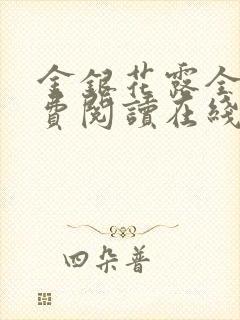 金銀花露全
費閱讀在綫
四朵普